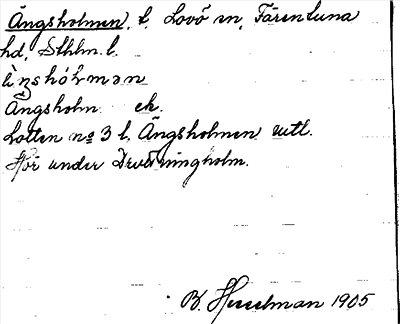 Ängsholmen, t, Lovö sn, Färentuna
hd, Sthlm. l.
Ängsholm ek.
Lotten nº 3 l. Ängsholmen utl.
Hör under Drottningholm.
B. Hesselman 1905